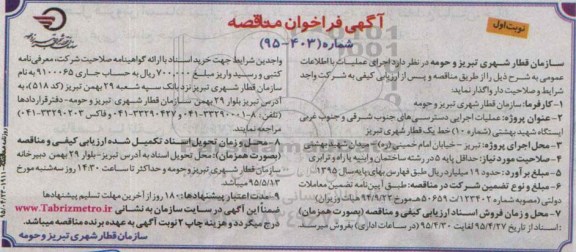 نوبت اول
آگهی فراخوان مناقصه
شماره (۴۰۳-۹۵)
سازمان قطار شهری تبریز و حومه در نظر دارد اجرای عملیات با اطلاعات
عمومی به شرح ذیل را از طریق مناقصه و پس از ارزیابی کیفی به شرکت واجد
شرایط و صلاحیت دار واگذار نماید:
۱- کارفرما: سازمان قطار شهری تبریز و حومه
۲- عنوان پروژه: عملیات اجرایی دسترسی های جنوب شرقی و جنوب غربی
ایستگاه شهید بهشتی (شماره ۱۰) خط یک قطار شهری تبریز
۳- محل اجرای پروژه: تبریز - خیابان امام خمینی (ره) - میدان شهید بهشتی
۴- صلاحیت مورد نیاز: حداقل پایه ۵ در رشته ساختمان و ابنیه یا راه و ترابری
۵- مبلغ برآورد: حدود ۱۹ میلیارد ریال طبق فهارس بهای پایه سال ۱۳۹۵
۶- مبلغ و نوع تضمین شرکت در مناقصه: طبق آیین نامه تضمین معاملات
دولتی (مصوبه شماره ۱۲۳۴۰۲/ت۵۰۶۵۹ه مورخ ۹۴/۹/۲۲ هیات وزیران)
۷- محل و زمان فروش اسناد ارزیابی کیفی و مناقصه (بصورت همزمان)
: اسناد از تاریخ ۹۵/۴/۲۷ لغایت ۹۵/۴/۳۰ (در ساعات اداری) بفروش میرسد.
واجدین شرایط جهت خرید اسناد با ارائه گواهینامه صلاحیت شرکت، معرفی نامه
کتبی و رسید واریز مبلغ ۷۰۰/۰۰۰ ریال به حساب جاری ۹۱۰۰۰۶۵ به نام
سازمان قطار شهری تبریز نزد بانک سپه شعبه ۲۹ بهمن تبریز (کد ۵۱۸)، به
آدرس تبریز بلوار ۲۹ بهمن سازمان قطار شهری تبریز و حومه - دفتر قراردادها
مراجعه نمایند.
۸- محل و زمان تحویل اسناد تکمیل شده ارزیابی کیفی و مناقصه
(بصورت همزمان): محل تحویل اسناد به آدرس تبریز - بلوار ۲۹ بهمن دبیرخانه
سازمان قطار شهری تبریز و حومه و حداکثر تا ساعت ۱۴:۳۰ روز سه شنبه مورخ
۹۵/۵/۱۲ میباشد.
۹- مدت اعتبار پیشنهادها: ۱۸۰ روز از آخرین مهلت تسلیم پیشنهادها
ضمناً این آگهی در سایت سازمان به نشانی www.Tabrizmetro.ir
درج میگردد و هزینه چاپ ۲ نوبت آگهی به عهده برنده مناقصه میباشد.
سازمان قطار شهری تبریز و حومه